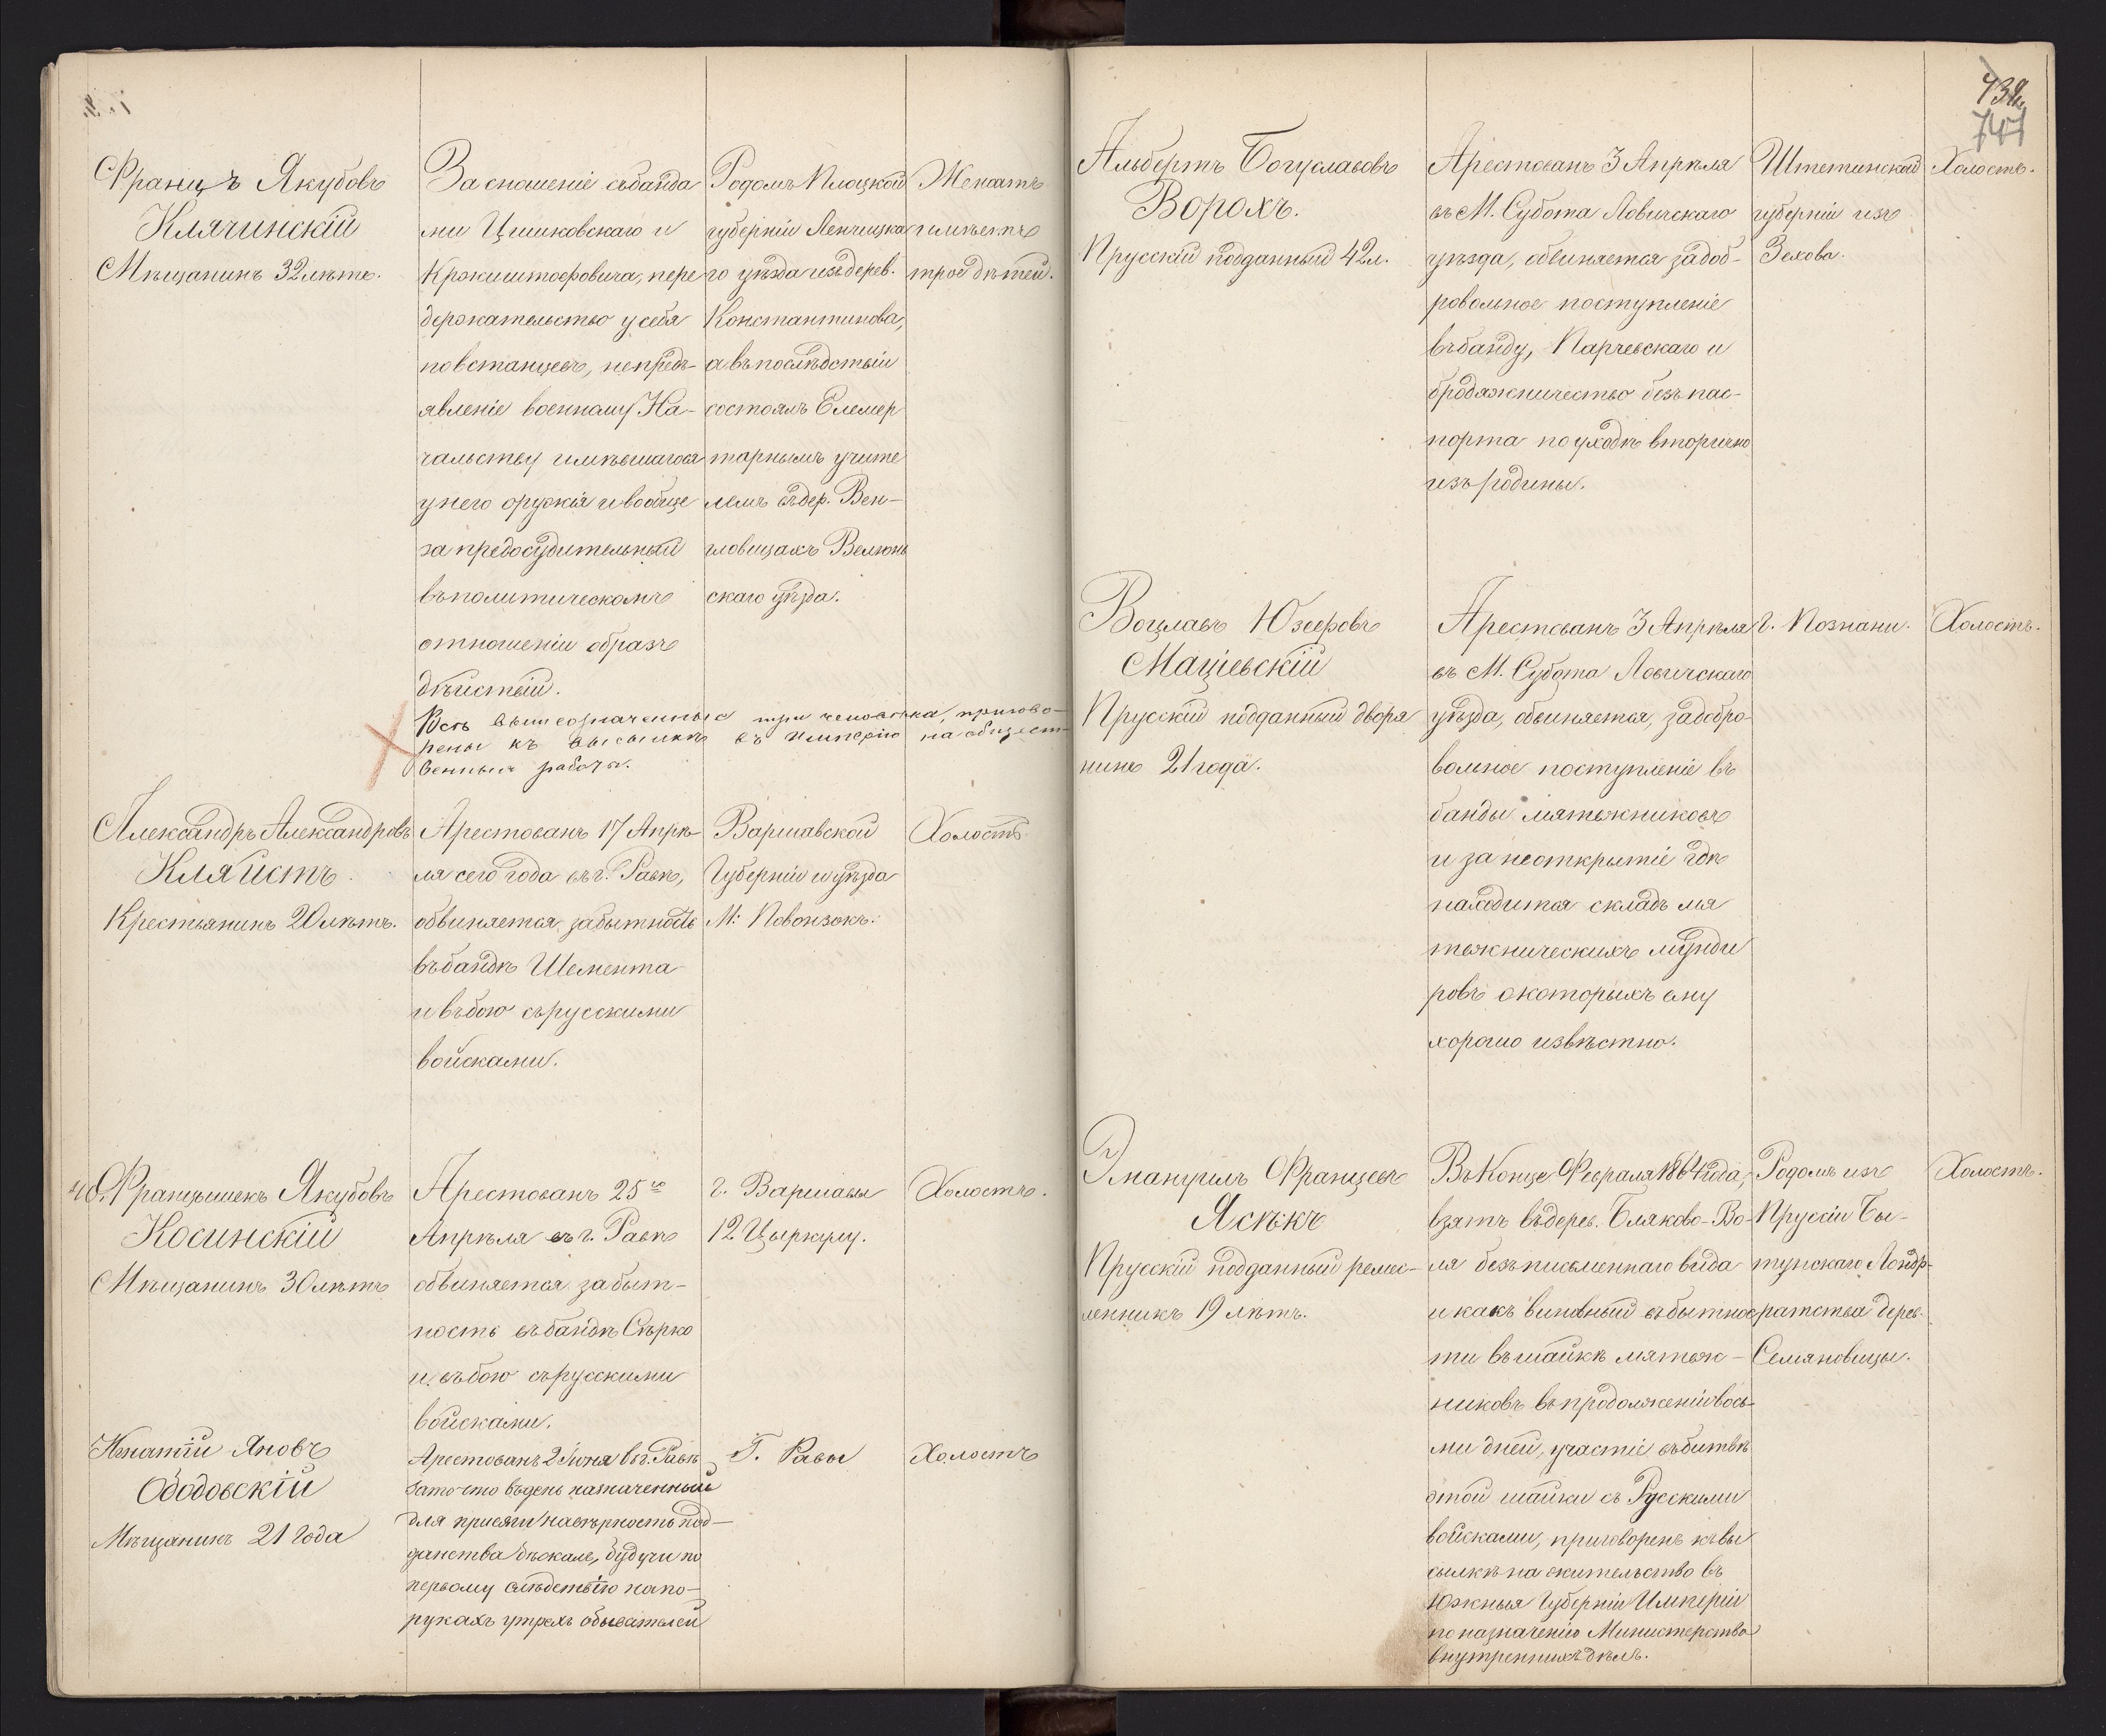 Францъ Якубовъ
Клячинскій
Мѣщанинъ 32 лѣтъ.
За сношеніе съ банда
ми Цишковскаго и
Кржиштофовича, пере
держательство у себя
повстанцевъ, не предъ-
явленіе военному На-
чальству имѣвшагося
у него оружія и вообще
за предосудительный
въ политическомъ
отношеніи образъ
дѣйствій.
Родомъ Плоцкой
губерніи Ленчицка
го уѣзда изъ дерев.
Константинова,
а въ послѣдствіи
состоялъ Елемер
тарнымъ учите
лемъ въ дер. Вен-
гловицахъ Велюнь
скаго уѣзда.
Женатъ
и имѣетъ
трое дѣтей.
Всѣ вышеозначенные три человѣка, пригово-
рены къ высылкѣ въ Имперію на общест-
венныя работы.
Александръ Александровъ
Кляйстъ
Крестьянинъ 20 лѣтъ.
Арестованъ 17 Апрѣ-
ля сего года въ г. Равѣ,
обвиняется за бытность
въ бандѣ Шемента
и въ бою съ русскими
войсками.
Варшавской
Губерніи и уѣзда
М: Повонзокъ.
Холостъ
40. Францишекъ Якубовъ
Косинскій
Мѣщанинъ 30 лѣтъ
Арестованъ 25го
Апрѣля въ г. Равѣ
обвиняется за быт-
ность въ бандѣ Сѣрко
и въ бою съ русскими
войсками.
г. Варшавы
12 Цыркулу.
Холостъ.
Игнатій Яновъ
Ободовскій
Мѣщанинъ 21 Года
Арестованъ 2 Іюня въ г. Равѣ
за то что въ день назначенный
для присяги на вѣрность под-
данства бѣжалъ, будучи по
первому слѣдствію на по-
рукахъ у трехъ обывателей
Г. Равы
Холостъ
739
741
Альбертъ Богуславовъ
Ворохъ.
Прусскій подданный 42 л.
Арестованъ 3 Апрѣля
въ М. Субота Ловичскаго
уѣзда, обвиняется за доб-
ровольное поступленіе
въ банду, Парчевскаго и
бродяжничество безъ пас-
порта по уходѣ вторично
изъ родины.
Штетинской
губерніи изъ
Зехова.
Холостъ.
Воцлавъ Юзефовъ
Маціевскій
Прусскій подданный дворя
нинъ 21 года.
Арестованъ 3 Апрѣля
въ М. Субота Ловичскаго
уѣзда, обвиняется, за добро-
вольное поступленіе въ
банды мятежниковъ
и за неоткрытіе гдѣ
находится складъ мя
тежническихъ мунди
ровъ о которыхъ ему
хорошо извѣстно.
г. Познани.
Холостъ.
Эмануилъ Францевъ
Ясѣкъ
Прусскій подданный ремес-
ленникъ 19 лѣтъ.
Въ Концѣ Февраля 1864 года,
взятъ въ дерев. Бляково-Во-
ля безъ письменнаго вида
и какъ виновный въ бытнос
ти въ шайкѣ мятеж-
никовъ въ продолженіи вось-
ми дней, участіе въ битвѣ
этой шайки съ Русскими
войсками, приговоренъ къ вы
сылкѣ на жительство въ
Южныя Губерніи Имперіи
по назначенію Министерства
внутреннихъ дѣлъ.
Родомъ изъ
Прусіи Бы-
тунскаго Ландр-
ратства дерев.
Семяновицы.
Холостъ.